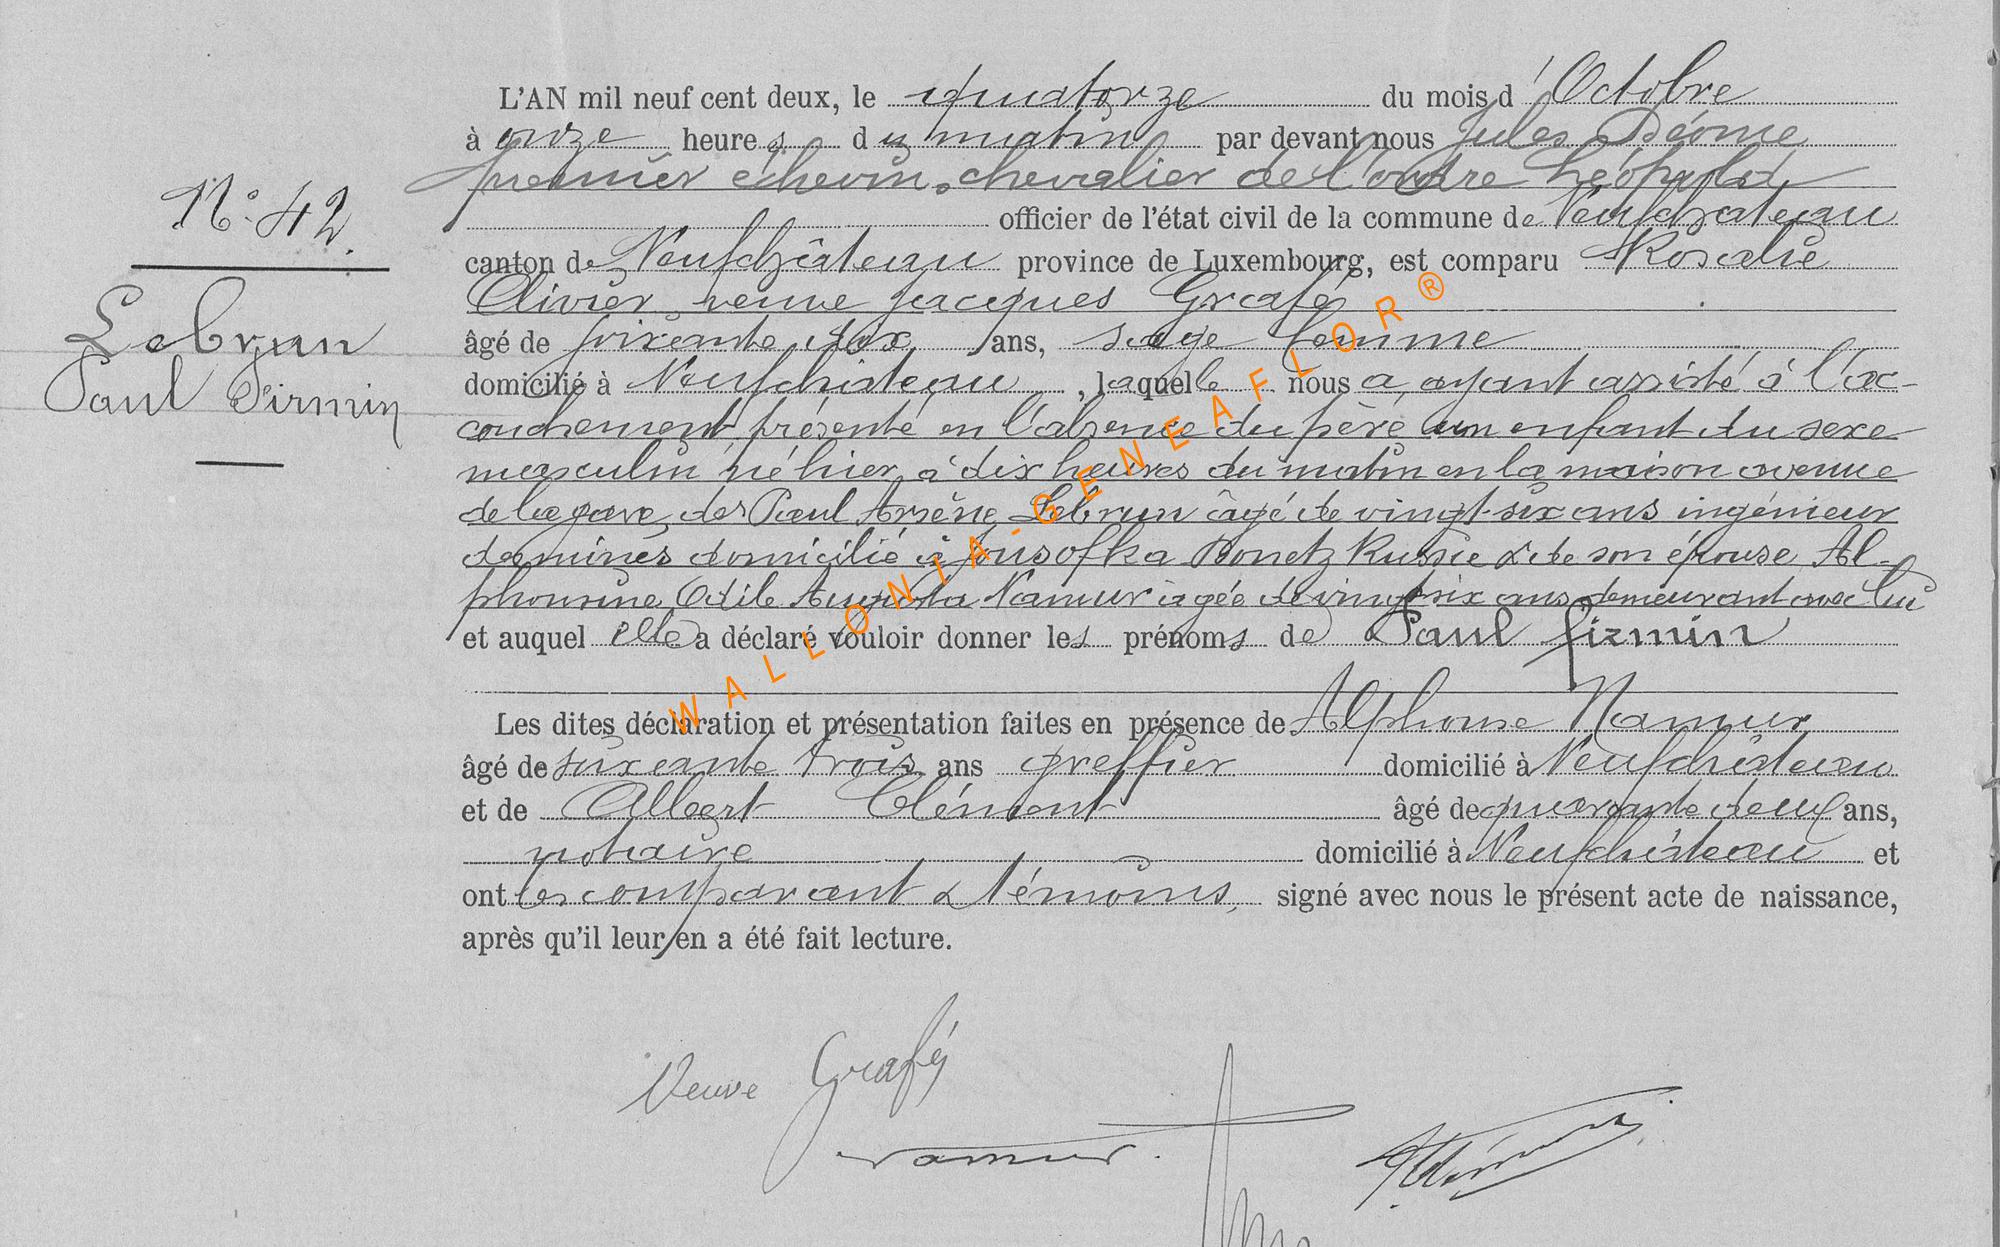 N° 42.
Lebrun
Paul Firmin
L'AN mil neuf cent deux, le quatorze du mois d'Octobre
à onze heures du matin par devant nous Jules Déome
premier échevin, chevalier de l'ordre Léopold
officier de l'état civil de la commune de Neufchateau
canton de Neufchâteau province de Luxembourg, est comparu Rosalie
Olivier veuve Jacques Grafé
âgé de soixante dix ans, sage femme
domicilié à Neufchâteau, laquelle nous a, ayant assisté à l'ac-
couchement, présenté en l'absence du père un enfant du sexe
masculin né hier à dix heures du matin en la maison avenue
de la gare, de Paul Arsène Lebrun âgé de vingt-six ans ingénieur
de mines domicilié à Jousofka Donetz Russie & de son épouse Al-
phonsine Odile Augusta Namur âgée de vingt six ans demeurant avec lui
et auquel elle a déclaré vouloir donner les prénoms de Paul Firmin
Les dites déclaration et présentation faites en présence de Alphonse Namur
âgé de soixante trois ans greffier domicilié à Neufchâteau
et de Albert Clément âgé de quarante deux ans,
notaire domicilié à Neufchâteau et
ont les comparant & témoins, signé avec nous le présent acte de naissance,
après qu'il leur en a été fait lecture.
Veuve Grafé
Namur.
WALLONIA-GENEAFLOR®